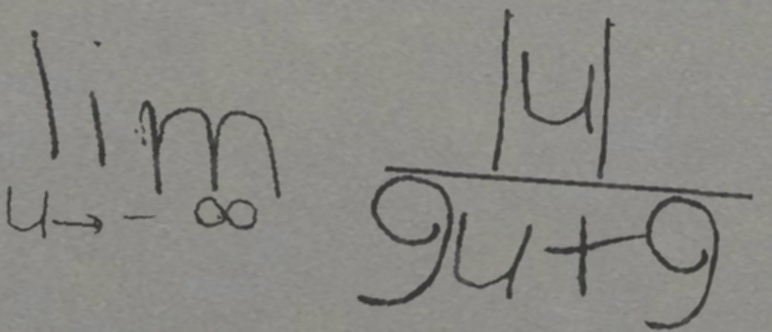 lim |u|
u→-∞ 9u+9